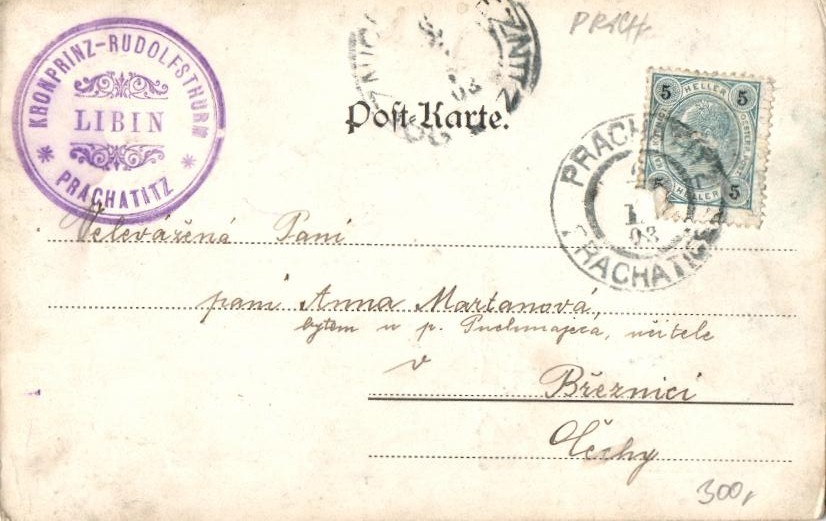 KRONPRINZ-RUDOLFSTHURM
LIBIN
* PRACHATITZ *
PRACH
Post-Karte.
ZNITZ
03
5 HELLER 5
5 HELLER 5
PRACHATITZ
03
PRACHATICE
Velevážená Paní
paní Anna Martanová,
bytem u p. Puchmajera, učitele
v
Březnici
Čechy
300,